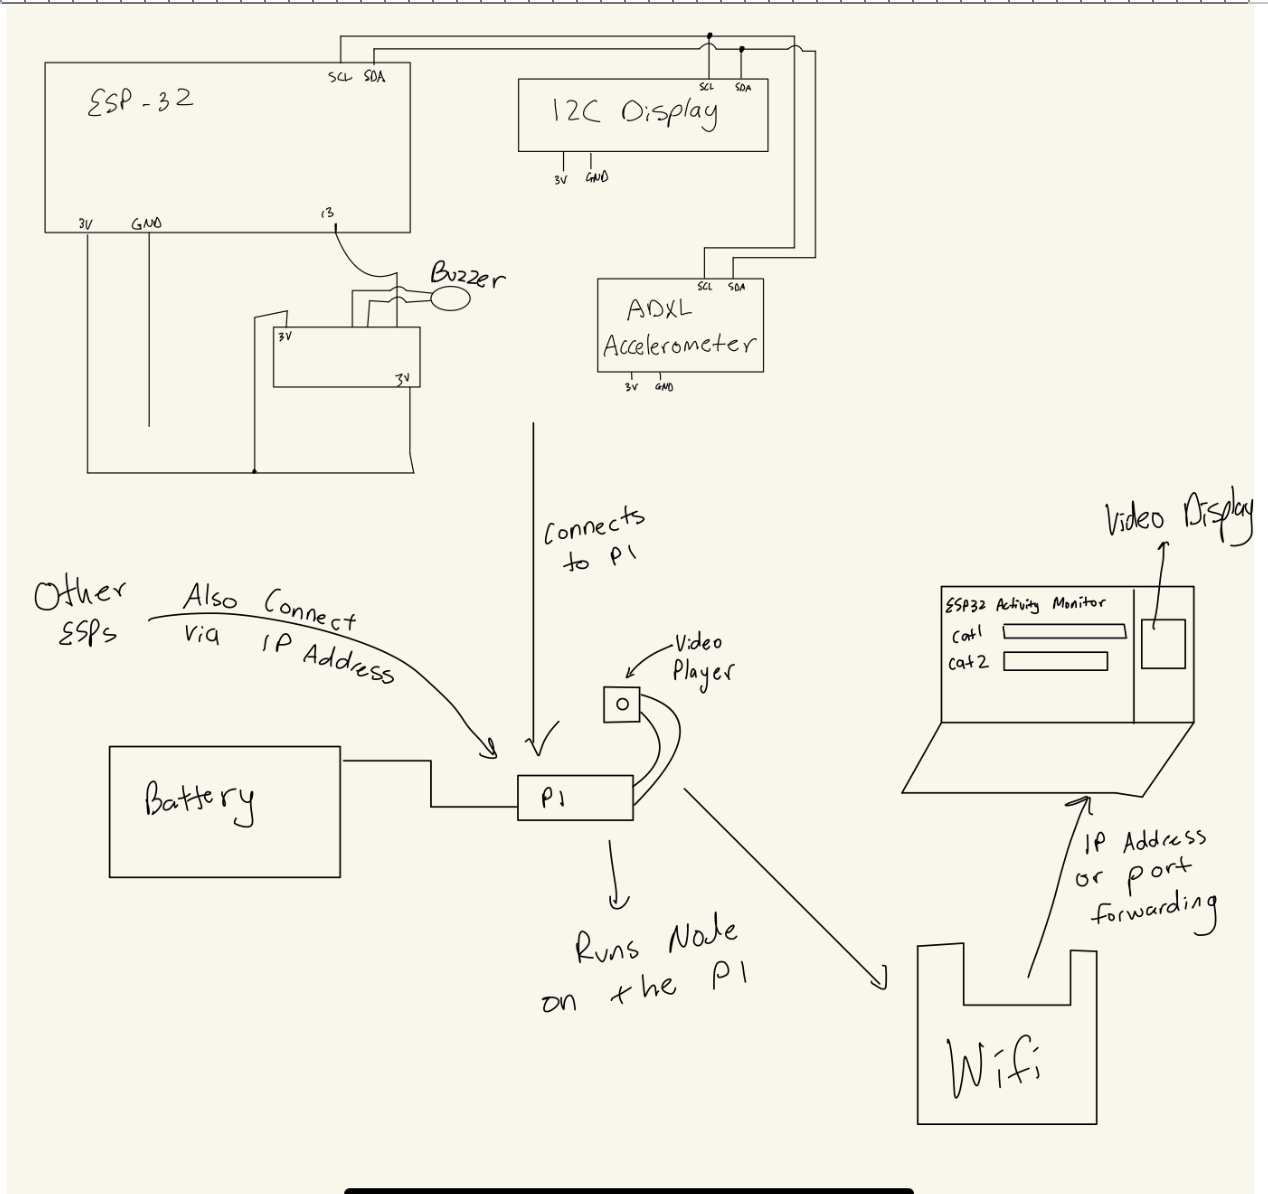 SCL SDA
ESP-32
3V GND
13
SCL SDA
I2C Display
3V GND
Buzzer
3V
3V
SCL SDA
ADXL
Accelerometer
3V GND
Connects
to PI
Other
ESPs
Also Connect
via IP Address
Video
Player
Battery
PI
Runs Node
on the PI
Video Display
ESP32 Activity Monitor
Cat1
Cat2
IP Address
or port
forwarding
Wifi